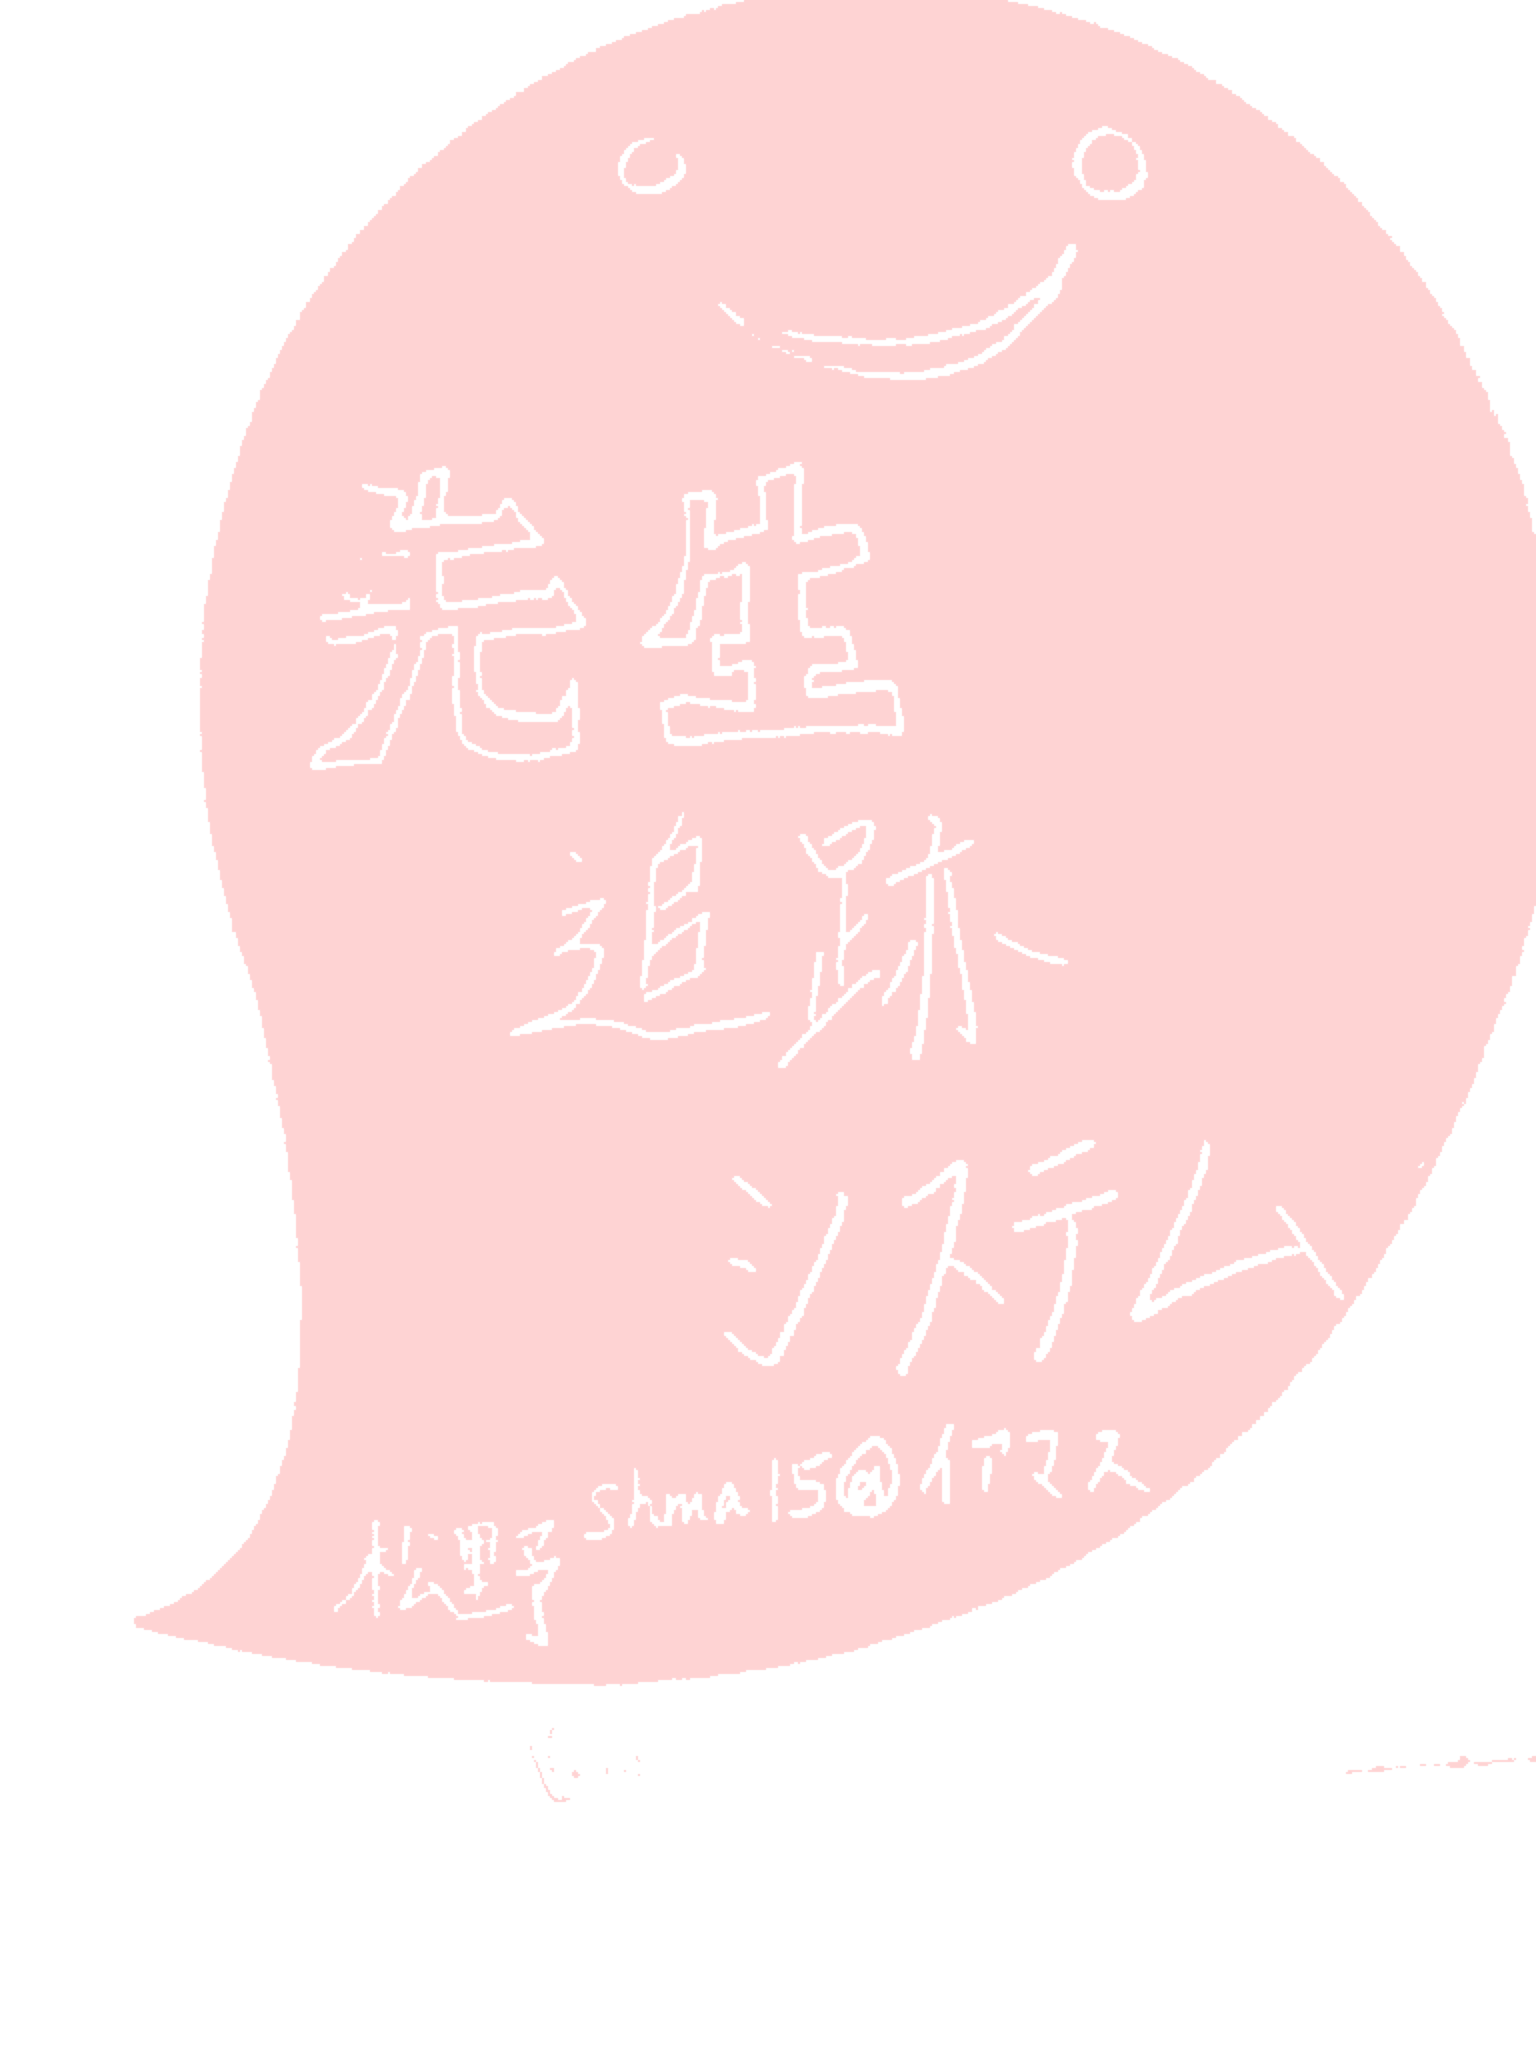 先生
追跡
システム
shma15@イアマス
松野